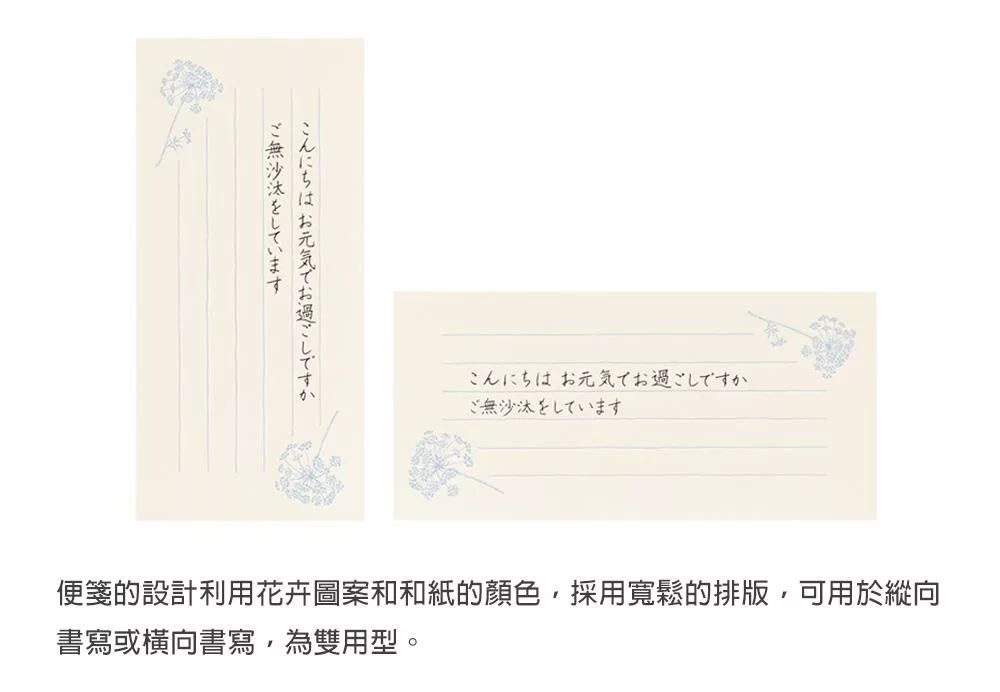 こんにちは お元気でお過ごしですか
ご無沙汰をしています
こんにちは お元気でお過ごしですか
ご無沙汰をしています
便箋的設計利用花卉圖案和和紙的顏色，採用寬鬆的排版，可用於縱向
書寫或橫向書寫，為雙用型。